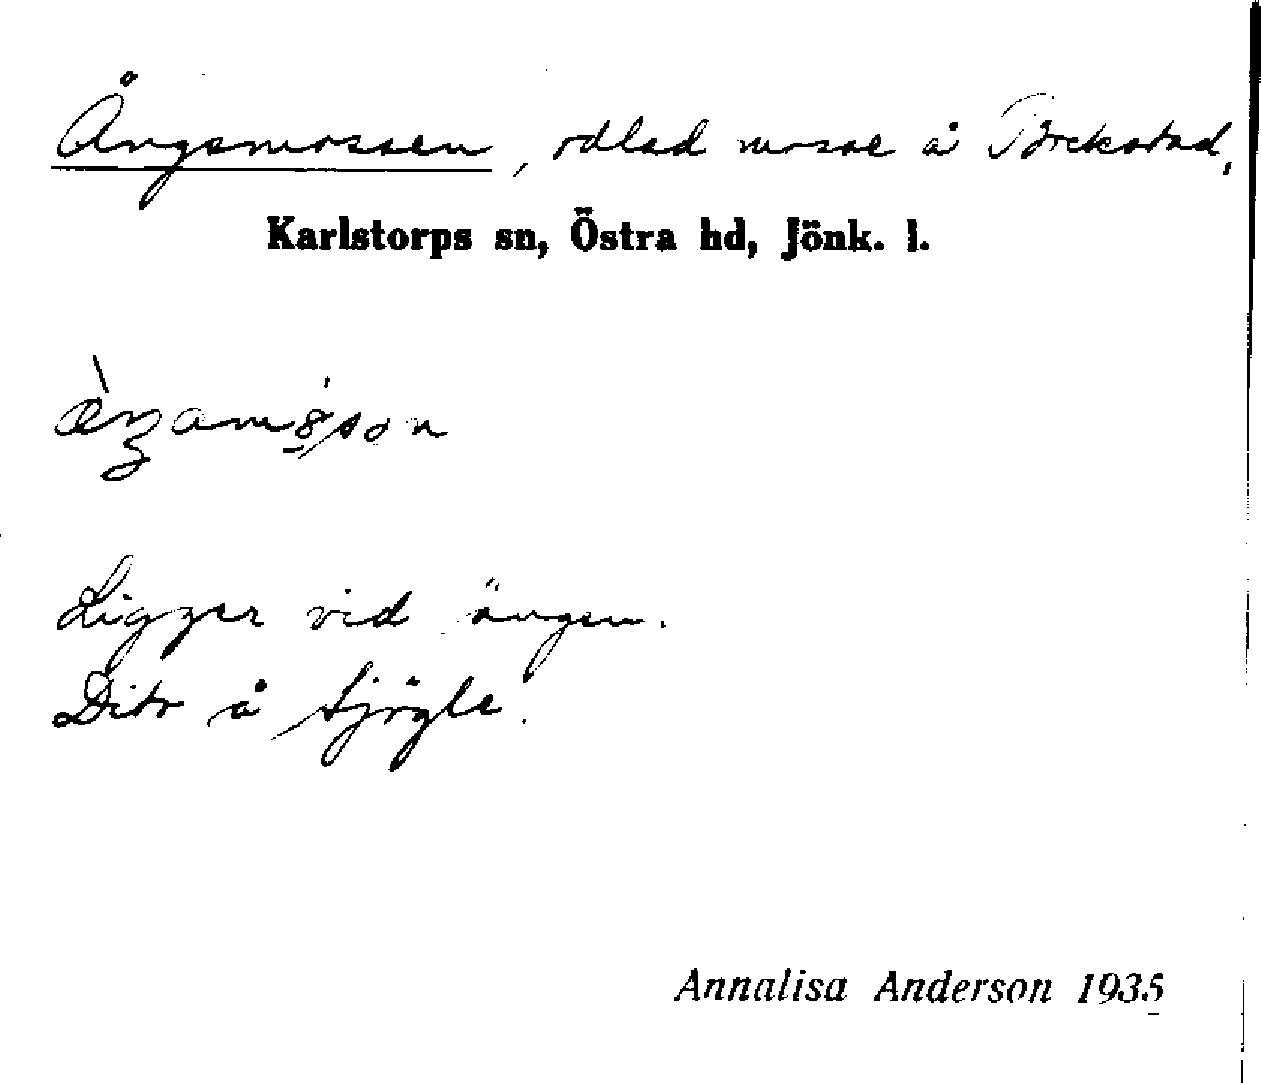 Ängsmossen, odlad mosse å Bäckstad,
Karlstorps sn, Östra hd, Jönk. l.
Ligger vid ängen.
Dito å Sjögle.
Annalisa Anderson 1935